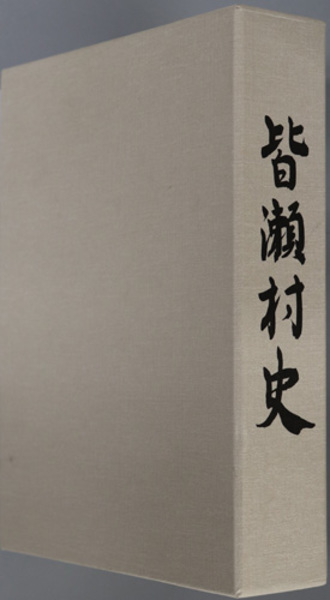 皆瀬村史